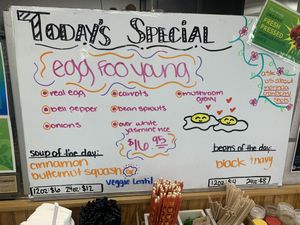 TODAY'S SPECIAL
egg foo young
real egg
bell pepper
onions
carrots
bean sprouts
over white
jasmine rice
mushroom
gravy
$16.95
soup of the day:
cinnamon
butternut squash or
veggie lentil
12oz: $6 24oz: $12
beans of the day:
black navy
12oz: $4 24oz: $8
ask
us about
FRESH
PRESSED